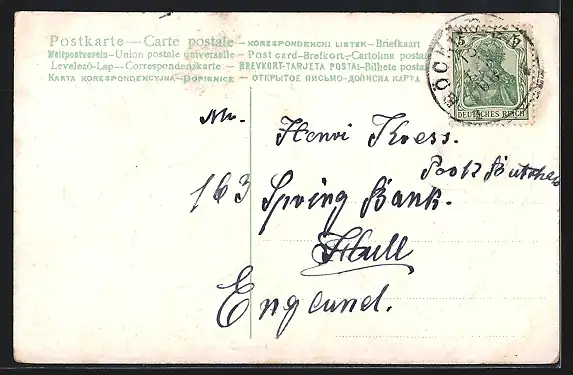 Postkarte – Carte postale – KORESPONDENČNI LISTEK – Briefkaart
Weltpostverein – Union postale universelle – Post card – Brefkort – Cartolina postale
Levelező-Lap – Correspondenzkarte – BREVKORT – TARJETA POSTAL – Bilhete postal
KARTA KORESPONDENCYJNA – DOPISNICE – ОТКРЫТОЕ ПИСЬМО – ДОПИСНА КАРТА
DEUTSCHES REICH
Mr.
Henri Kress.
Pork Butcher
163 Spring Bank.
Hull
England.